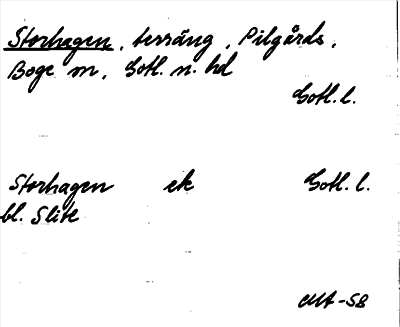 Storhagen, terräng, Pilgårds,
Boge sn, Gotl. n. hd
Gotl. l.
Storhagen ek Gotl. l.
bl. Slite